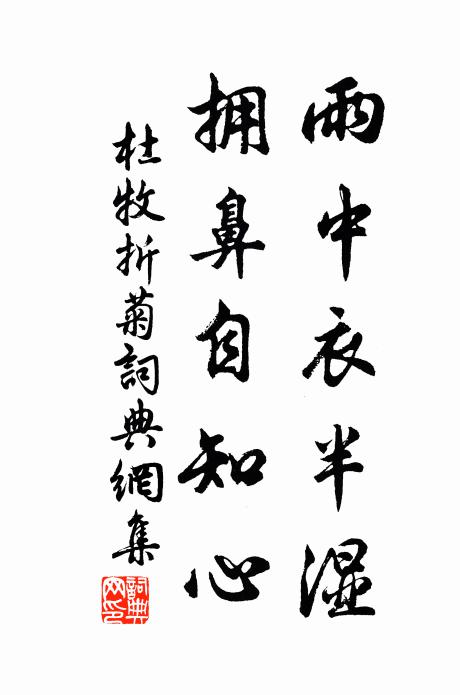 雨中衣半濕
拥鼻自知心
杜牧折菊詞典網集
詞典网印